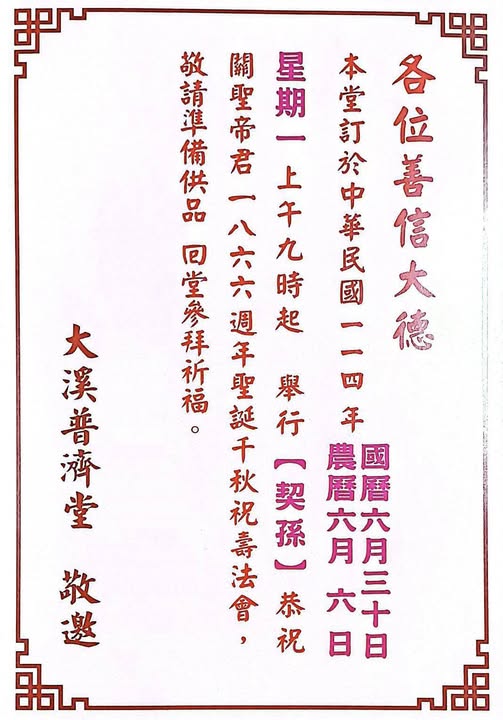 各位善信大德
本堂訂於中華民國一一四年
國曆六月三十日
農曆六月 六日
星期一 上午九時起 舉行【契孫】恭祝
關聖帝君一八六六週年聖誕千秋祝壽法會，
敬請準備供品 回堂參拜祈福。
大溪普濟堂 敬邀